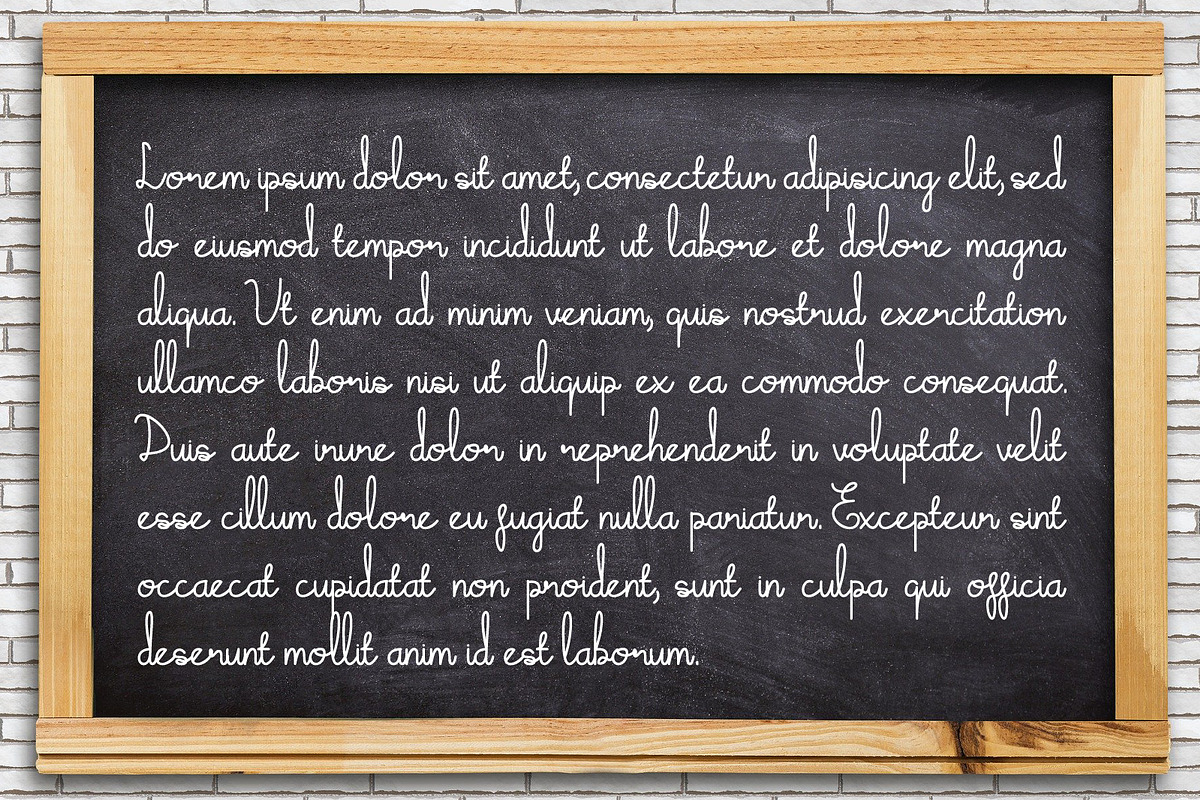 Lorem ipsum dolor sit amet, consectetur adipisicing elit, sed
do eiusmod tempor incididunt ut labore et dolore magna
aliqua. Ut enim ad minim veniam, quis nostrud exercitation
ullamco laboris nisi ut aliquip ex ea commodo consequat.
Duis aute irure dolor in reprehenderit in voluptate velit
esse cillum dolore eu fugiat nulla pariatur. Excepteur sint
occaecat cupidatat non proident, sunt in culpa qui officia
deserunt mollit anim id est laborum.